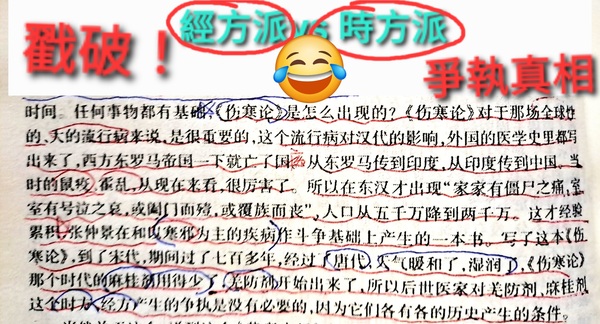 戳破！
經方派 vs 時方派
爭執真相
时间。任何事物都有基础，《伤寒论》是怎么出现的？《伤寒论》对于那场全球性
的、大的流行病来说，是很重要的，这个流行病对汉代的影响，外国的医学史里都写
出来了，西方东罗马帝国一下就亡了国，从东罗马传到印度，从印度传到中国。当
时的鼠疫、霍乱，从现在来看，很厉害了。所以在东汉才出现“家家有僵尸之痛，室
室有号泣之哀，或阖门而殪，或覆族而丧”，人口从五千万降到两千万。这才经验
累积，张仲景在和以寒邪为主的疾病作斗争基础上产生的一本书。写了这本《伤
寒论》，到了宋代，期间过了七百多年，经过了唐代，天气暖和了，湿润了，《伤寒论》
那个时代的麻桂剂用得少了，羌防剂开始出来了，所以后世医家对羌防剂，麻桂剂
这个时方、经方产生的争执是没有必要的，因为它们各有各的历史产生的条件。